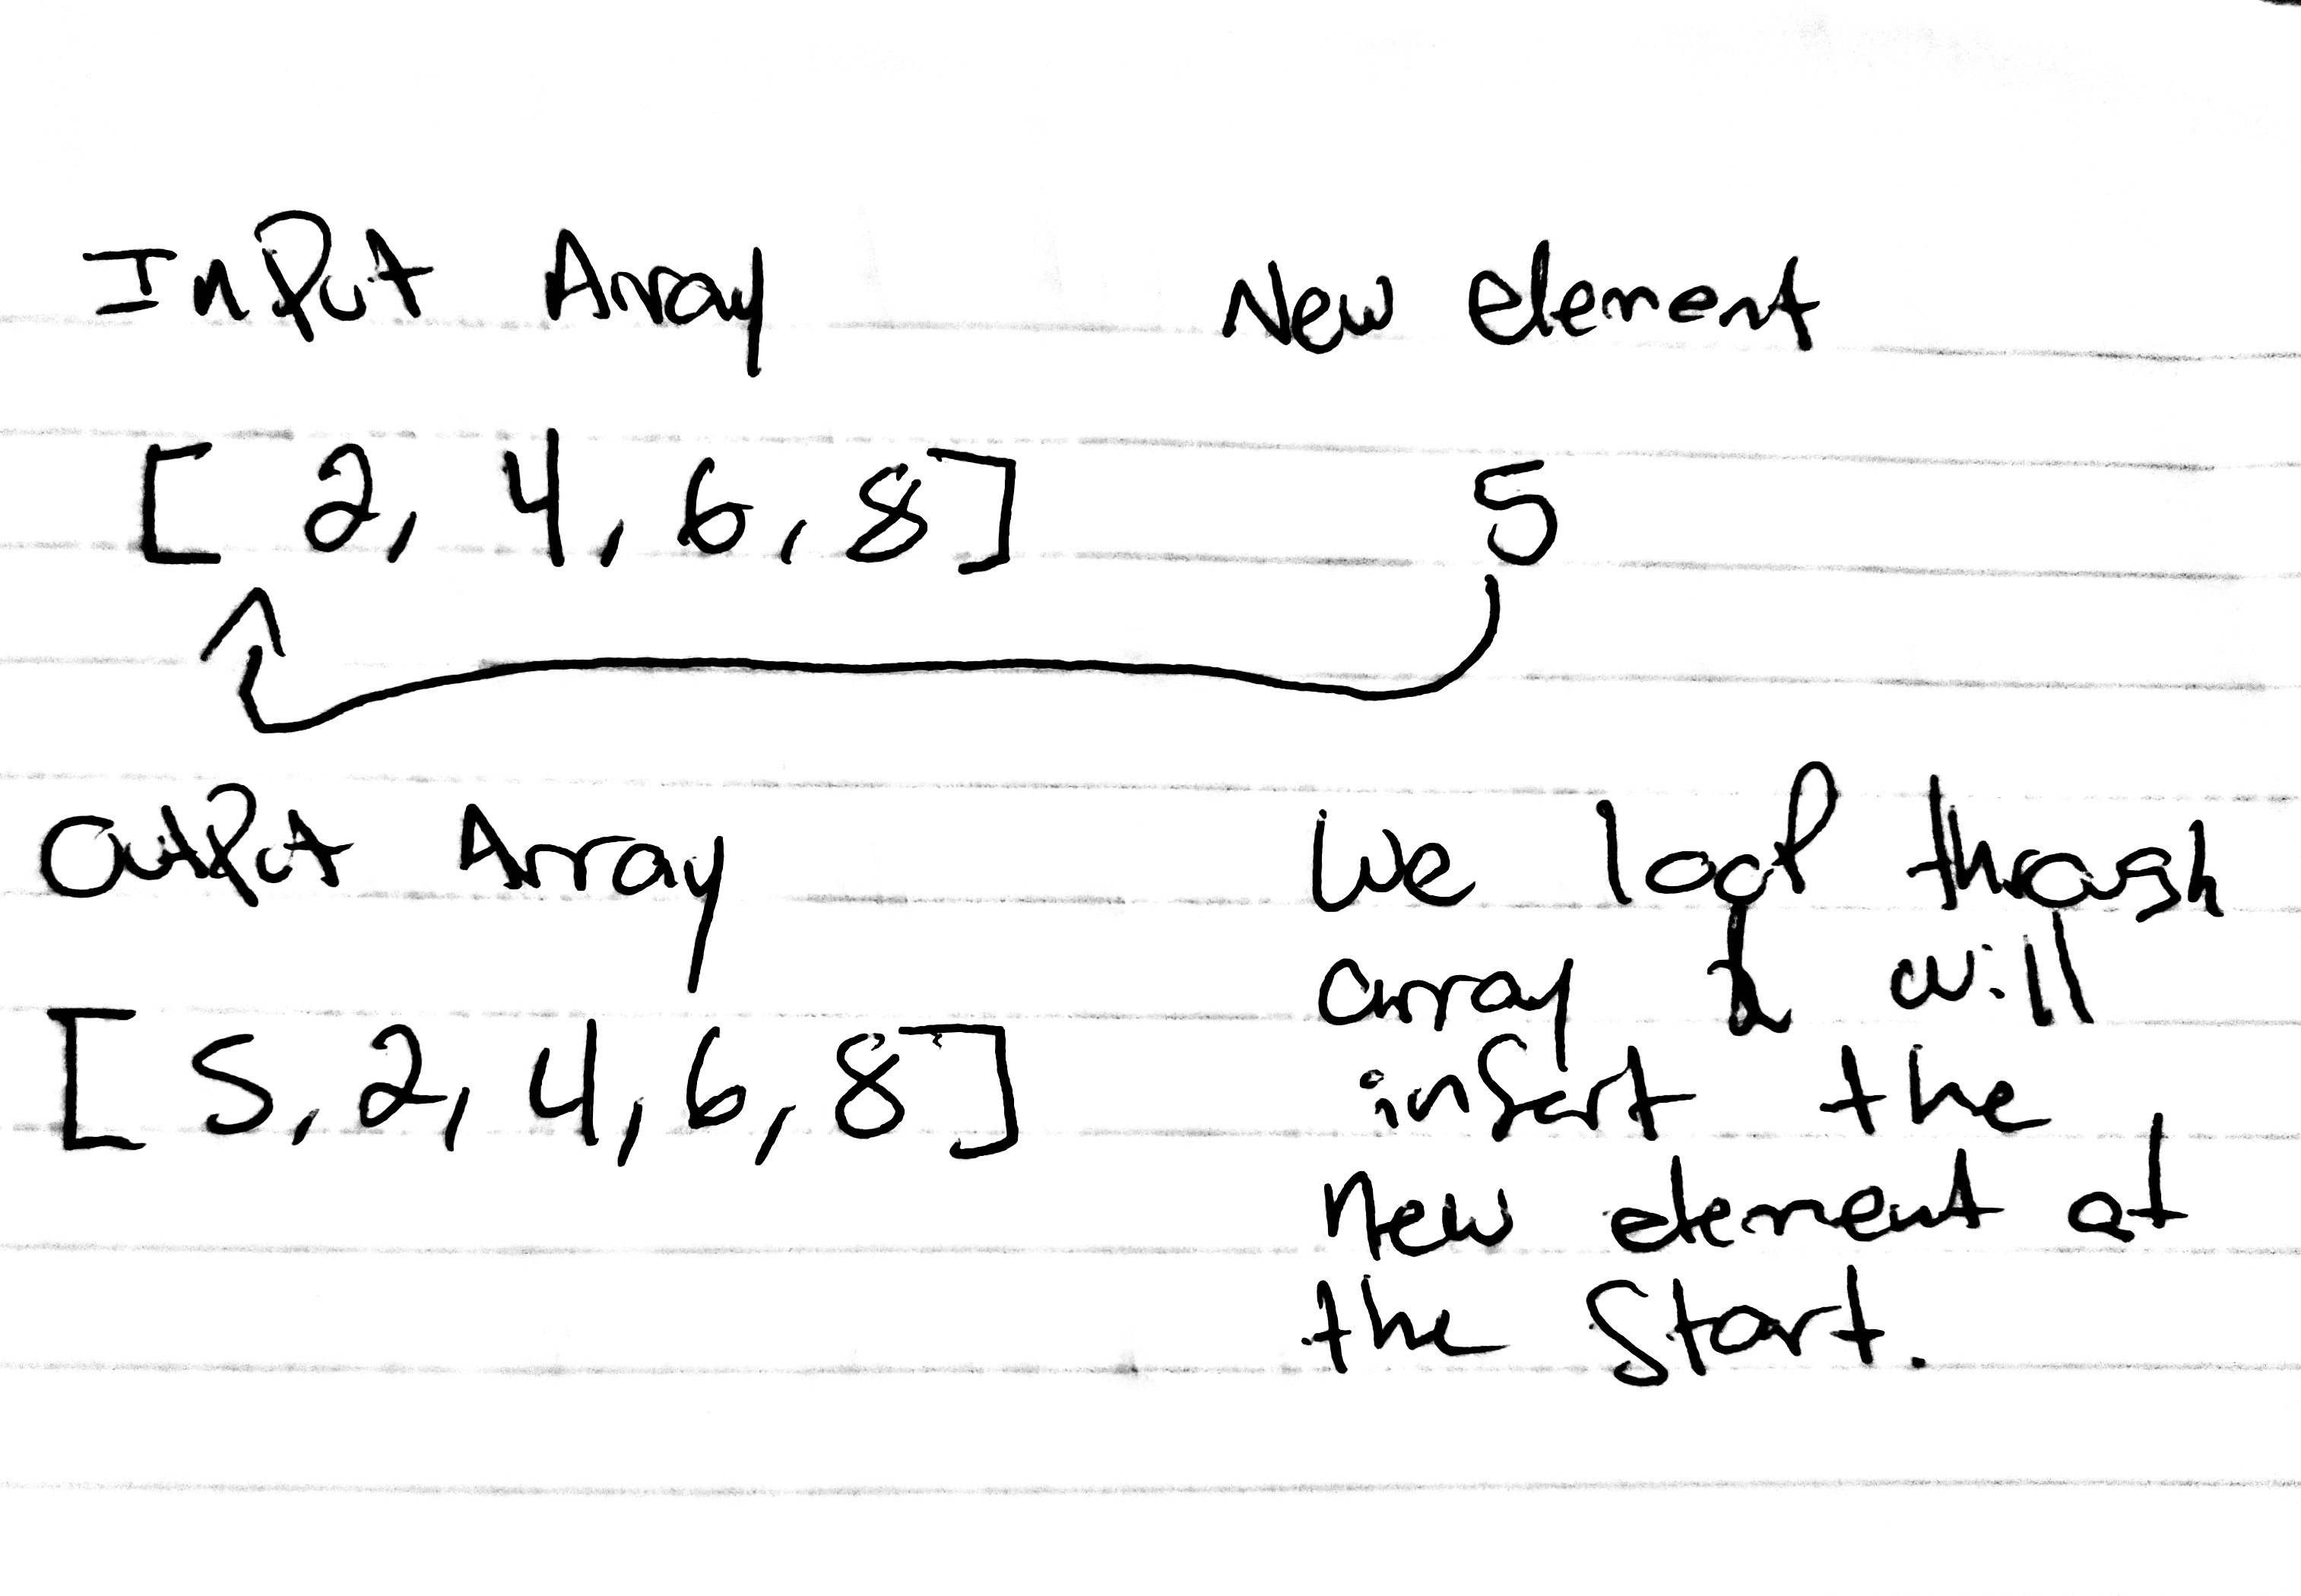 Input Array
New element
[ 2, 4, 6, 8 ]
5
Output Array
[ 5, 2, 4, 6, 8 ]
We loop through
array & will
insert the
new element at
the Start.